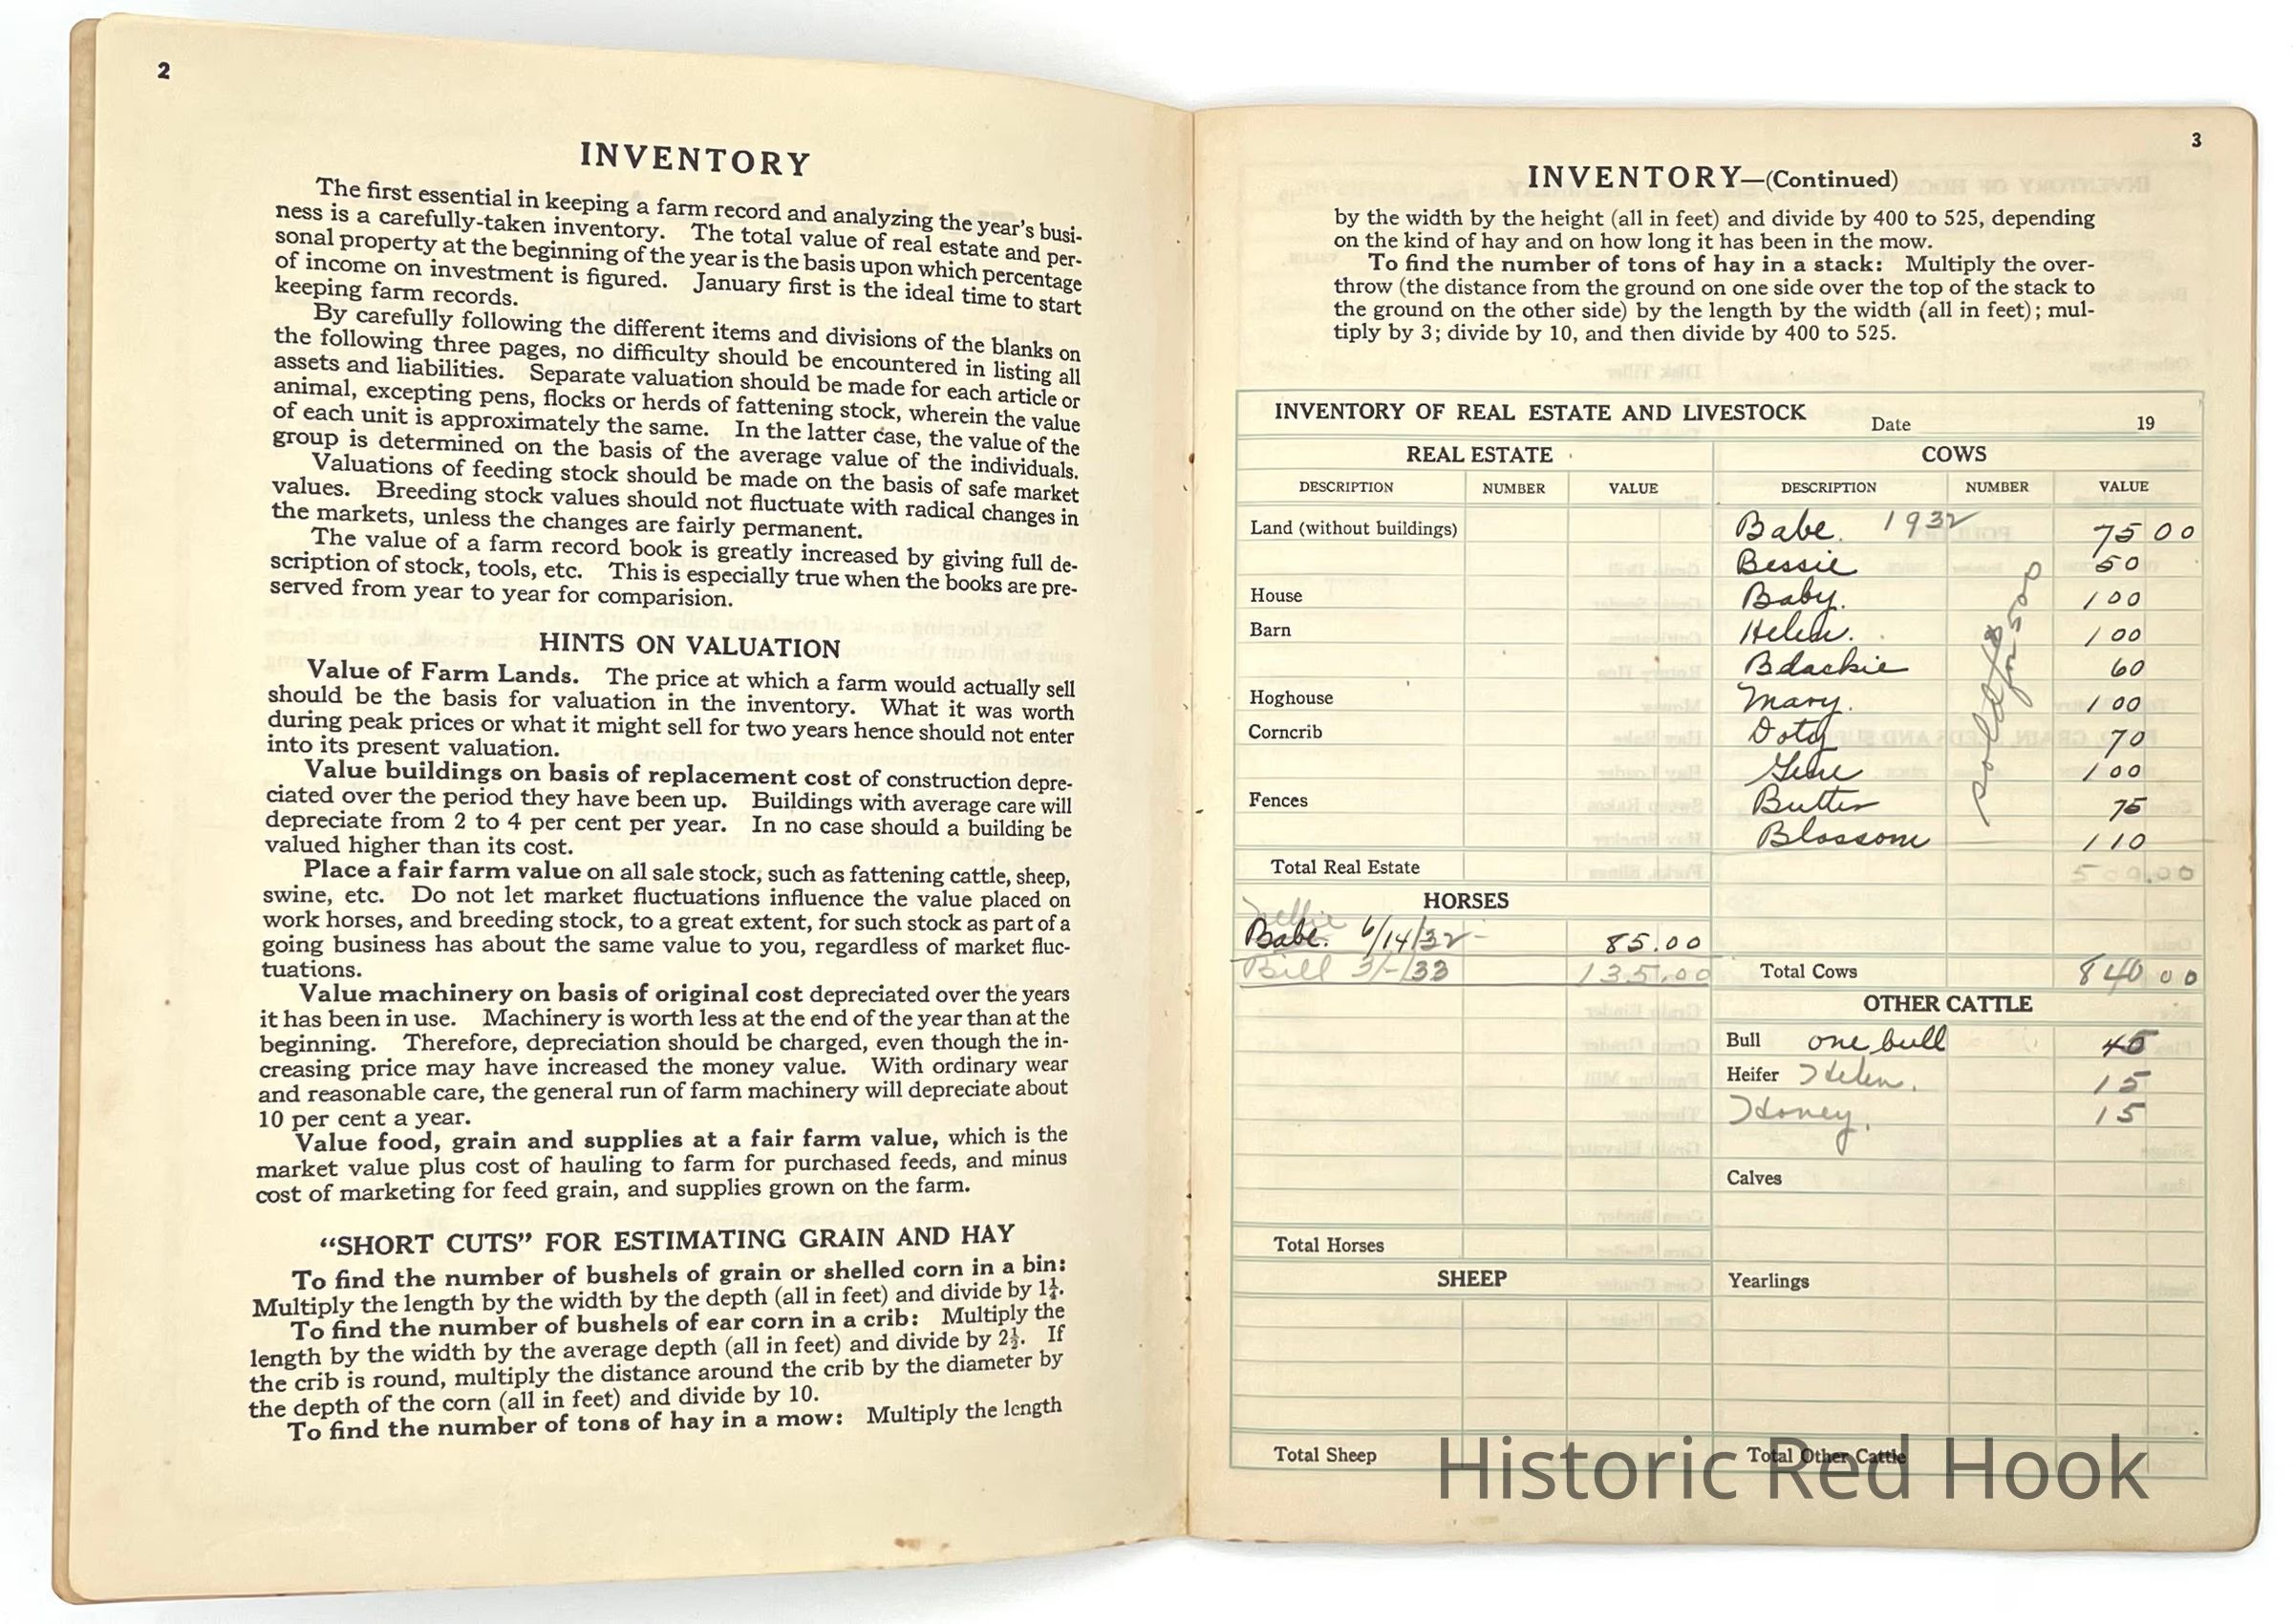 2
INVENTORY
The first essential in keeping a farm record and analyzing the year's busi-
ness is a carefully-taken inventory. The total value of real estate and per-
sonal property at the beginning of the year is the basis upon which percentage
of income on investment is figured. January first is the ideal time to start
keeping farm records.
By carefully following the different items and divisions of the blanks on
the following three pages, no difficulty should be encountered in listing all
assets and liabilities. Separate valuation should be made for each article or
animal, excepting pens, flocks or herds of fattening stock, wherein the value
of each unit is approximately the same. In the latter case, the value of the
group is determined on the basis of the average value of the individuals.
Valuations of feeding stock should be made on the basis of safe market
values. Breeding stock values should not fluctuate with radical changes in
the markets, unless the changes are fairly permanent.
The value of a farm record book is greatly increased by giving full de-
scription of stock, tools, etc. This is especially true when the books are pre-
served from year to year for comparision.
HINTS ON VALUATION
Value of Farm Lands. The price at which a farm would actually sell
should be the basis for valuation in the inventory. What it was worth
during peak prices or what it might sell for two years hence should not enter
into its present valuation.
Value buildings on basis of replacement cost of construction depre-
ciated over the period they have been up. Buildings with average care will
depreciate from 2 to 4 per cent per year. In no case should a building be
valued higher than its cost.
Place a fair farm value on all sale stock, such as fattening cattle, sheep,
swine, etc. Do not let market fluctuations influence the value placed on
work horses, and breeding stock, to a great extent, for such stock as part of a
going business has about the same value to you, regardless of market fluc-
tuations.
Value machinery on basis of original cost depreciated over the years
it has been in use. Machinery is worth less at the end of the year than at the
beginning. Therefore, depreciation should be charged, even though the in-
creasing price may have increased the money value. With ordinary wear
and reasonable care, the general run of farm machinery will depreciate about
10 per cent a year.
Value food, grain and supplies at a fair farm value, which is the
market value plus cost of hauling to farm for purchased feeds, and minus
cost of marketing for feed grain, and supplies grown on the farm.
"SHORT CUTS" FOR ESTIMATING GRAIN AND HAY
To find the number of bushels of grain or shelled corn in a bin:
Multiply the length by the width by the depth (all in feet) and divide by 1¼.
To find the number of bushels of ear corn in a crib: Multiply the
length by the width by the average depth (all in feet) and divide by 2½. If
the crib is round, multiply the distance around the crib by the diameter by
the depth of the corn (all in feet) and divide by 10.
To find the number of tons of hay in a mow: Multiply the length
3
INVENTORY—(Continued)
by the width by the height (all in feet) and divide by 400 to 525, depending
on the kind of hay and on how long it has been in the mow.
To find the number of tons of hay in a stack: Multiply the over-
throw (the distance from the ground on one side over the top of the stack to
the ground on the other side) by the length by the width (all in feet); mul-
tiply by 3; divide by 10, and then divide by 400 to 525.
INVENTORY OF REAL ESTATE AND LIVESTOCK Date 19
REAL ESTATE
DESCRIPTION NUMBER VALUE
Land (without buildings)
House
Barn
Hoghouse
Corncrib
Fences
Total Real Estate
HORSES
Nellie
Babe. 6/14/32- 85.00
Bill 3/-/33 135.00
Total Horses
SHEEP
Total Sheep
COWS
DESCRIPTION NUMBER VALUE
Babe. 1932 75 00
Bessie 50
Baby. 100
Helen. 100
Bdackie 60
Mary. 100
Doty 70
Gene 100
Butter 75
Blossom 110
sold for $500
500.00
Total Cows 840 00
OTHER CATTLE
Bull one bull 45
Heifer Helen. 15
Honey. 15
Calves
Yearlings
Total Other Cattle
Historic Red Hook